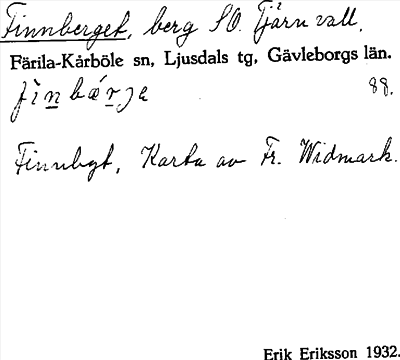 Finnberget, berg SO. Tjärnvall,
Färila-Kårböle sn, Ljusdals tg, Gävleborgs län.
fìn bǽrje 88.
Finnbgt, Karta av Fr. Widmark.
Erik Eriksson 1932.